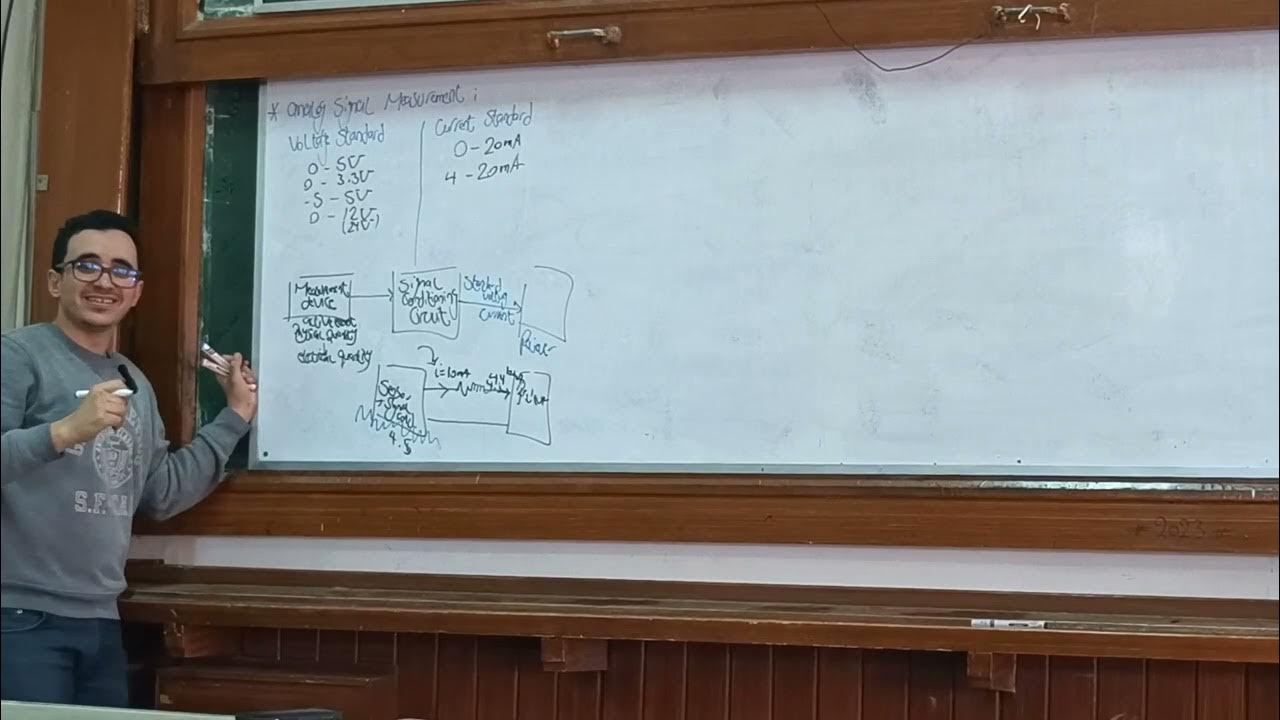 * analog Signal Measurement :
Voltage Standard
0 - 5V
0 - 3.3V
-5 - 5V
0 - 12V
(24V-)
Current Standard
0 - 20mA
4 - 20mA
Measurement
device
Physical quantity
electrical quantity
Signal
Conditioning
Circuit
Standard
voltage
Current
i=10mA
4.5
S.F.
* 2023 *